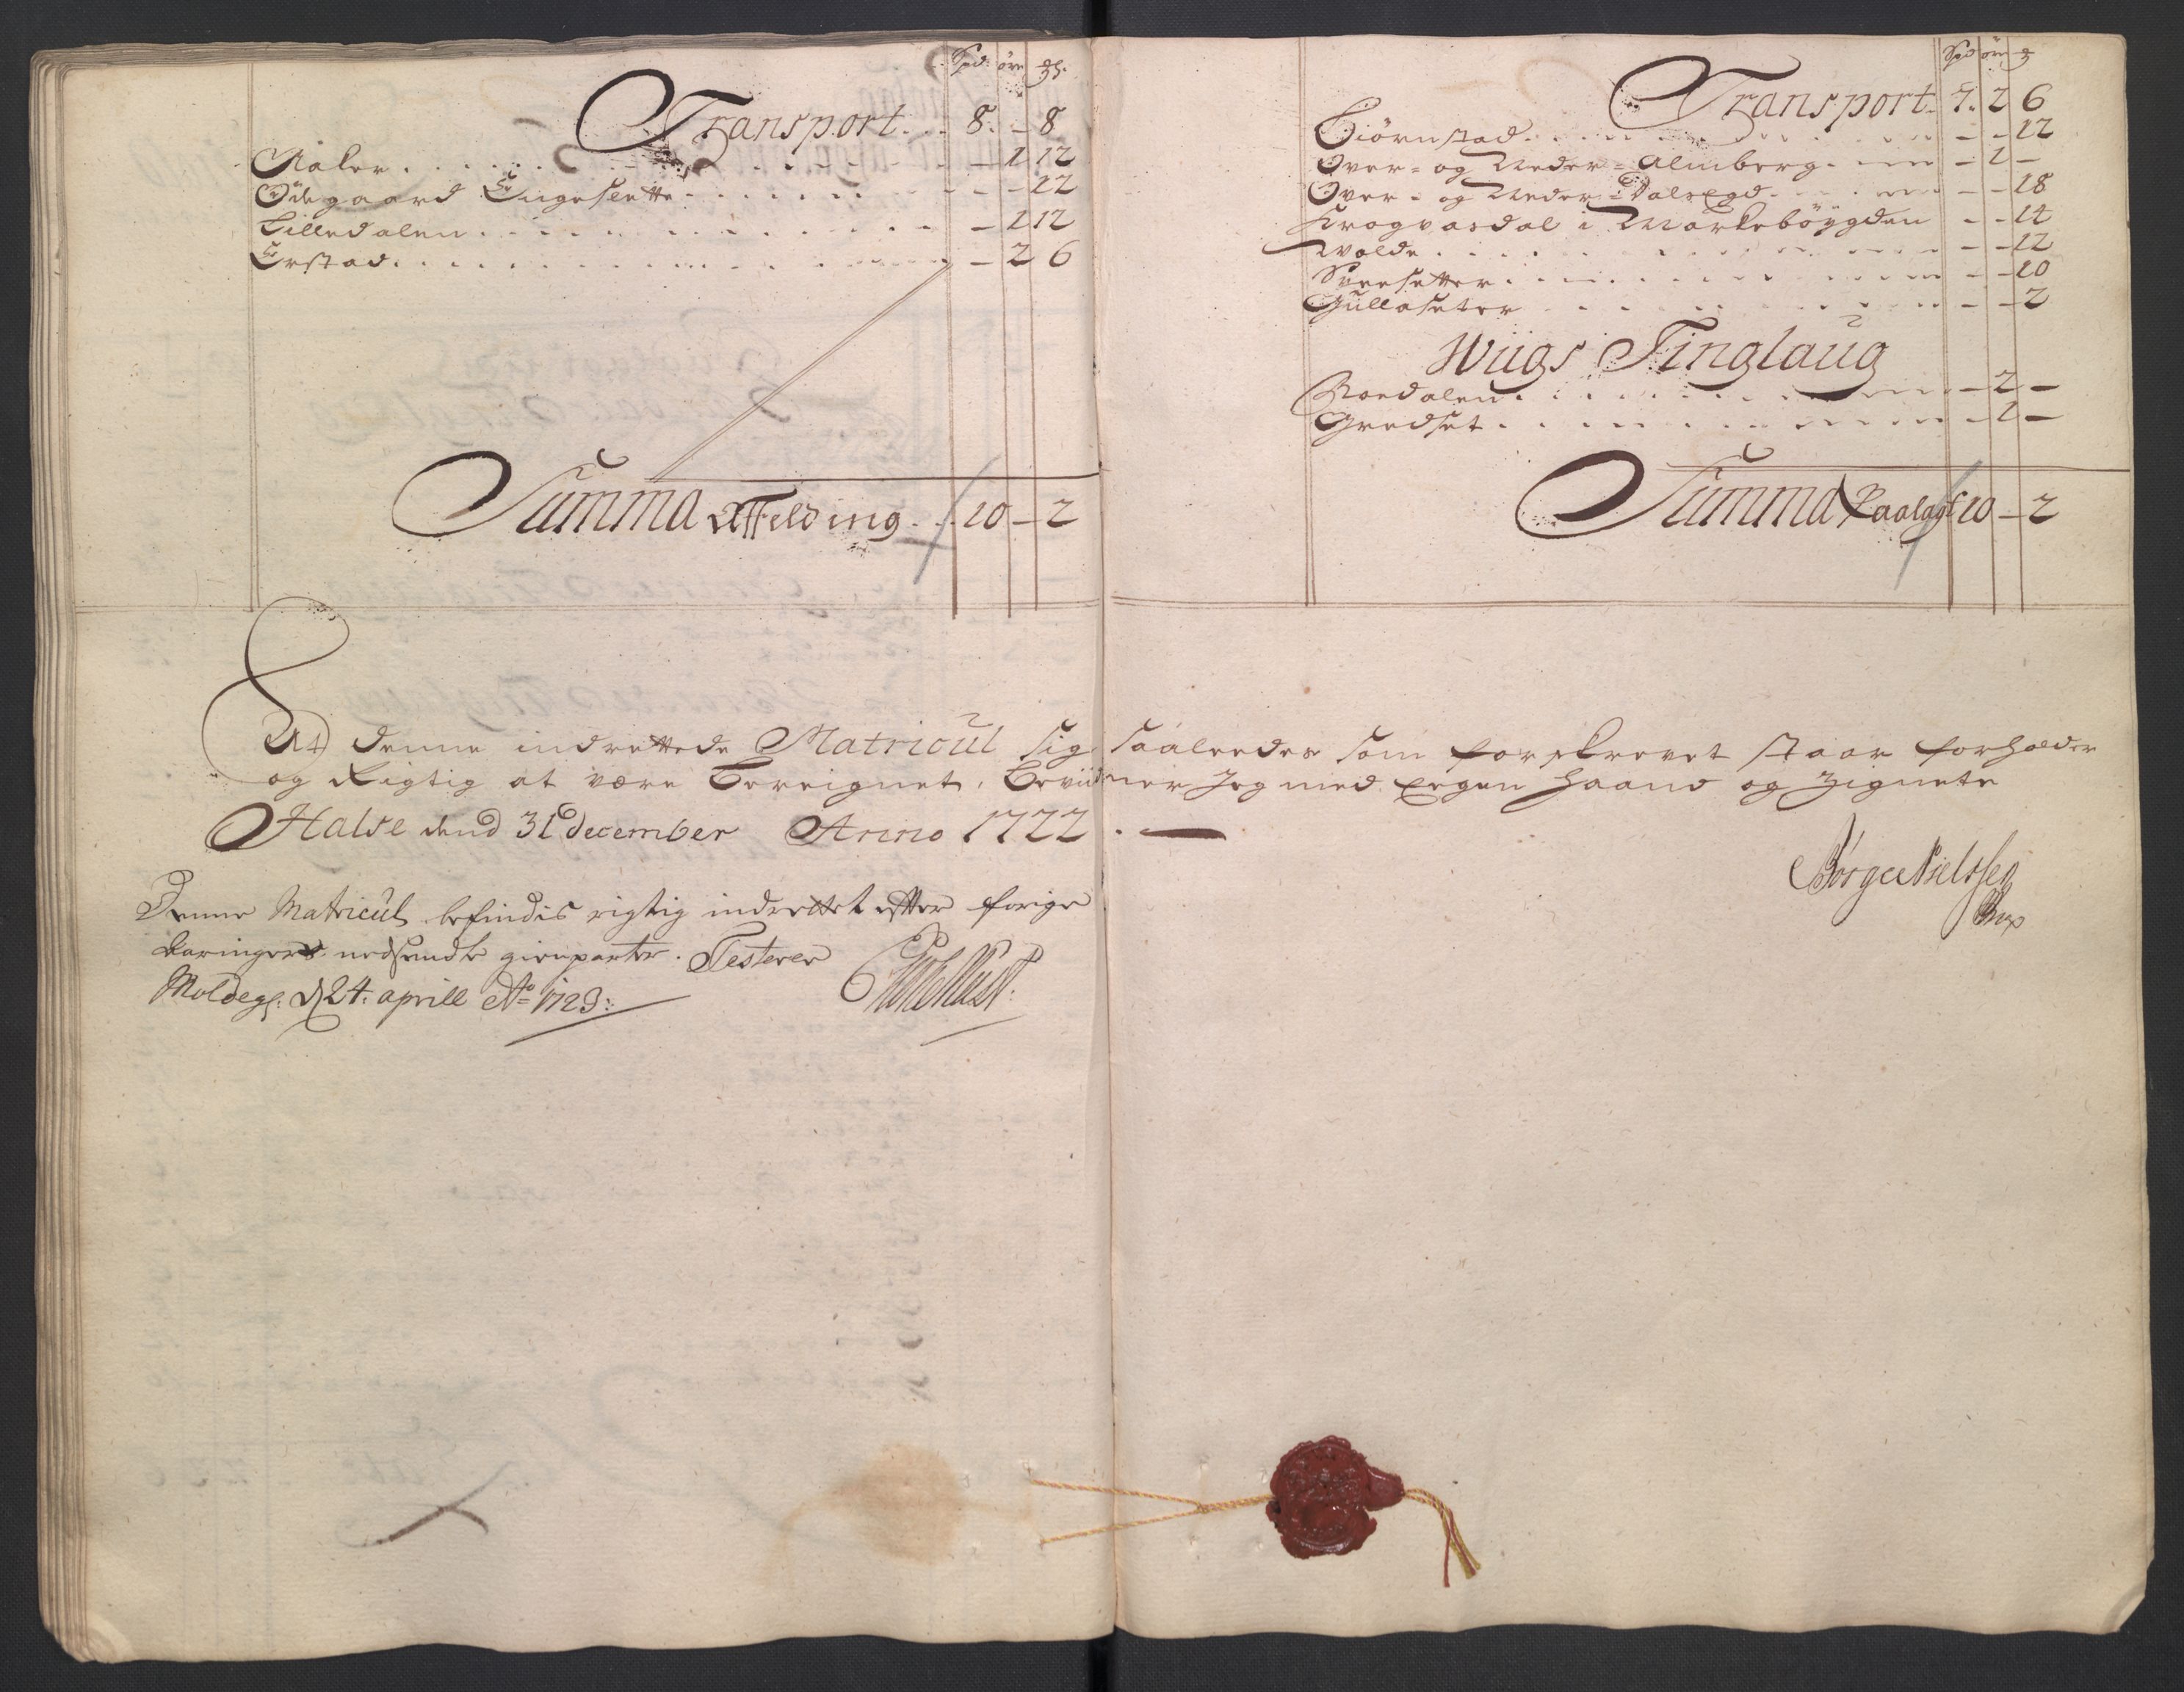 Spd. øre ₰.
Transport. . . 8. – 8
Røler. . . . – 1 12
Ødegaard Engesette . . . – – 12
Lilledalen . . . – 1 12
Erstad. . . . – 2 6
Summa Affelding. . . 10 – 2
Spd øre ₰
Transport. 7. 2 6
Biørnstad. . . . – – 12
Over- og Neder-Almberg. – 1 –
Over- og Neder-Dalsegd. – – 18
Krogvasdal i Markebøygden – – 14
Wolde . . . – – 12
Sværsetter. . . . – – 10
Gullaseter . . . – – 2
Wiigs Tinglaug
Roedalen. . . . – 2 –
Gredset . . . – 1 –
Summa Paalagt 10 – 2
At denne indrettede Matricul sig saaleedes som forskrevet staar forholder
og Rigtig at være Bereignet, Beviidner Jeg med Eegen Haand og Zignete
Halse dend 31 december Anno 1722. —
Børge Nielssen
Denne Matricul befindis rigtig indrettet efter forige
nedsendte gienparter. Testerer
Moldegd. d 24. aprill Ao 1723: